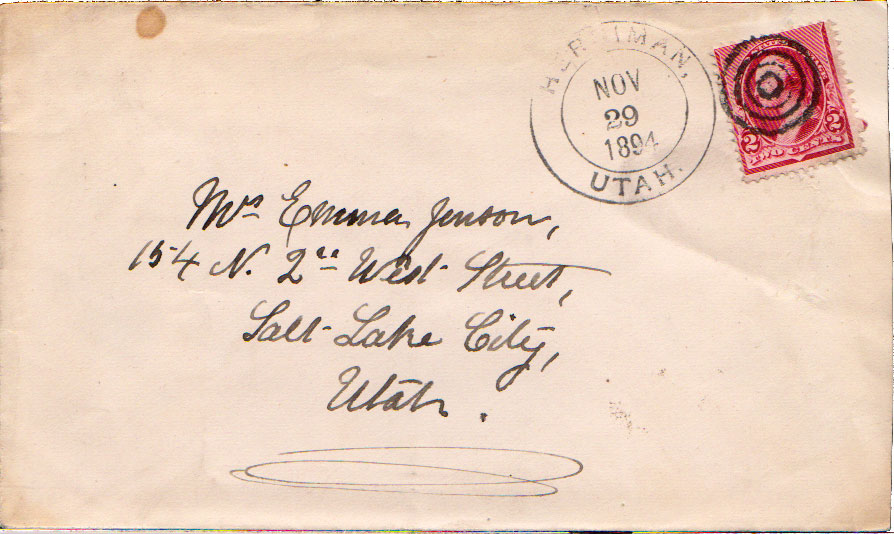 HERRIMAN,
NOV
29
1894
UTAH.
2 2
TWO CENTS
Mrs Emma Jenson,
154 N. 2nd West Street,
Salt Lake City,
Utah.